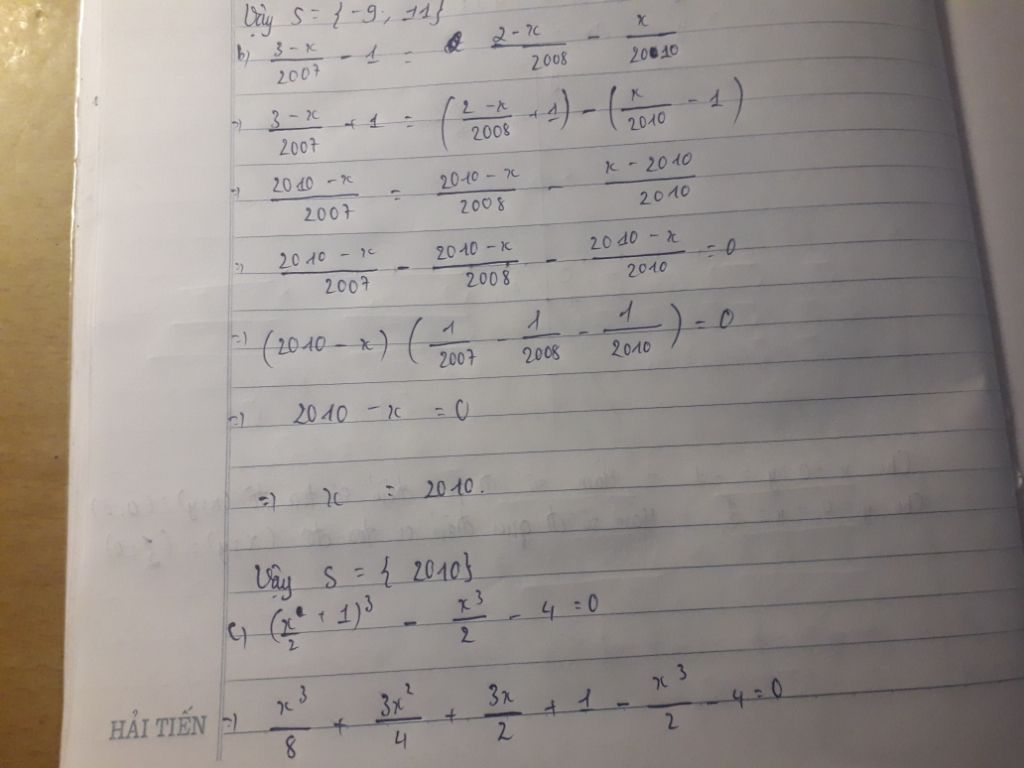 Vậy S = { -9; 11}
b) \frac{3-x}{2007} - 1 = \frac{2-x}{2008} - \frac{x}{2010}
=> \frac{3-x}{2007} + 1 = (\frac{2-x}{2008} + 1) - (\frac{x}{2010} - 1)
=> \frac{2010-x}{2007} = \frac{2010-x}{2008} - \frac{x-2010}{2010}
=> \frac{2010-x}{2007} - \frac{2010-x}{2008} - \frac{2010-x}{2010} = 0
=> (2010-x) (\frac{1}{2007} - \frac{1}{2008} - \frac{1}{2010}) = 0
=> 2010 - x = 0
=> x = 2010.
Vậy S = { 2010}
c) (\frac{x}{2} + 1)^3 - \frac{x^3}{2} - 4 = 0
=> \frac{x^3}{8} + \frac{3x^2}{4} + \frac{3x}{2} + 1 - \frac{x^3}{2} - 4 = 0
HẢI TIẾN